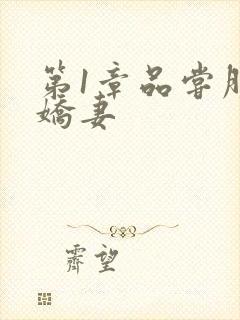 第1章品尝
娇妻
霽望